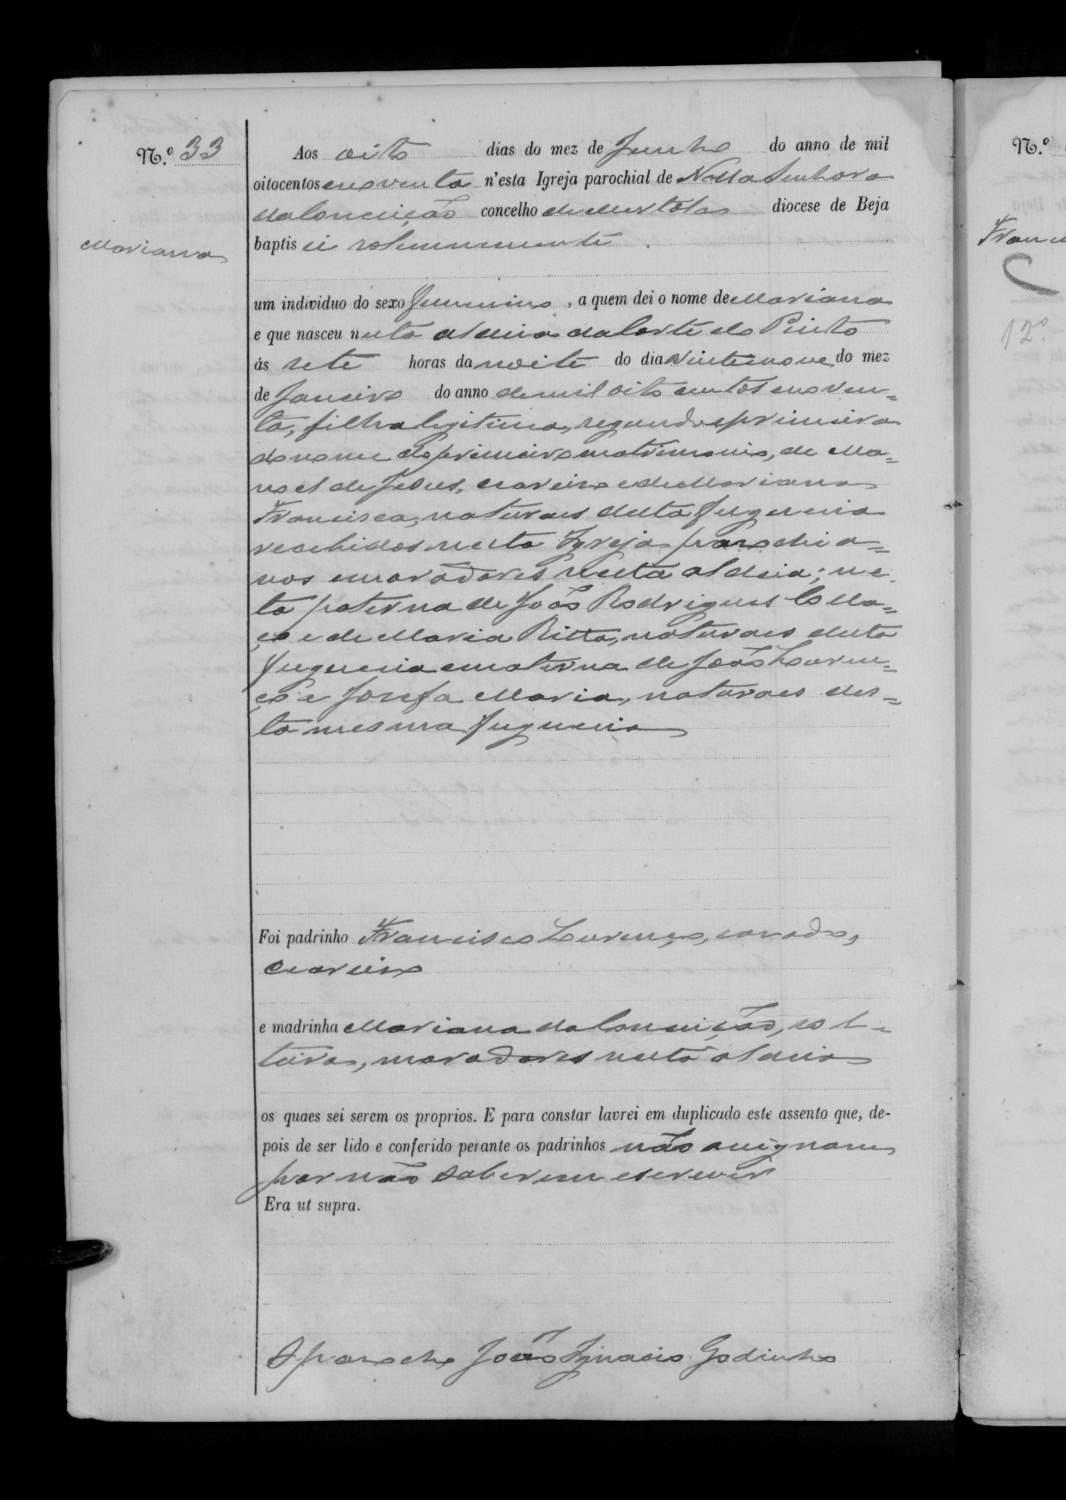 N.º 33
Marianna
Aos oito dias do mez de Junho do anno de mil
oitocentos e noventa n'esta Igreja parochial de Nossa Senhora
da Conceição concelho de Mertola diocese de Beja
baptisei solemnemente
um individuo do sexo feminino, a quem dei o nome de Mariana
e que nasceu nesta aldeia da Corte do Pinto
ás sete horas da noite do dia vinte e nove do mez
de Janeiro do anno de mil oito centos e noven-
ta, filha legitima, segunda e primeira
do nome do primeiro matrimonio, de Ma-
noel de Jesus, ceareiro e de Mariana
Francisca, naturaes desta freguesia
recebidos nesta Igreja parochia-
nos e moradores nesta aldeia; ne-
ta paterna de João Rodrigues Colla-
ço e de Maria Ritta, naturaes desta
freguesia e materna de João Louren-
ço e Josefa Maria, naturaes des-
ta mesma freguesia
Foi padrinho Francisco Lourenço, casado,
ceareiro
e madrinha Mariana da Conceição, sol-
teira, moradores nesta aldeia
os quaes sei serem os proprios. E para constar lavrei em duplicado este assento que, de-
pois de ser lido e conferido perante os padrinhos não assignam
por não saberem escrever
Era ut supra.
O parocho João Ignacio Godinho
N.º
12º